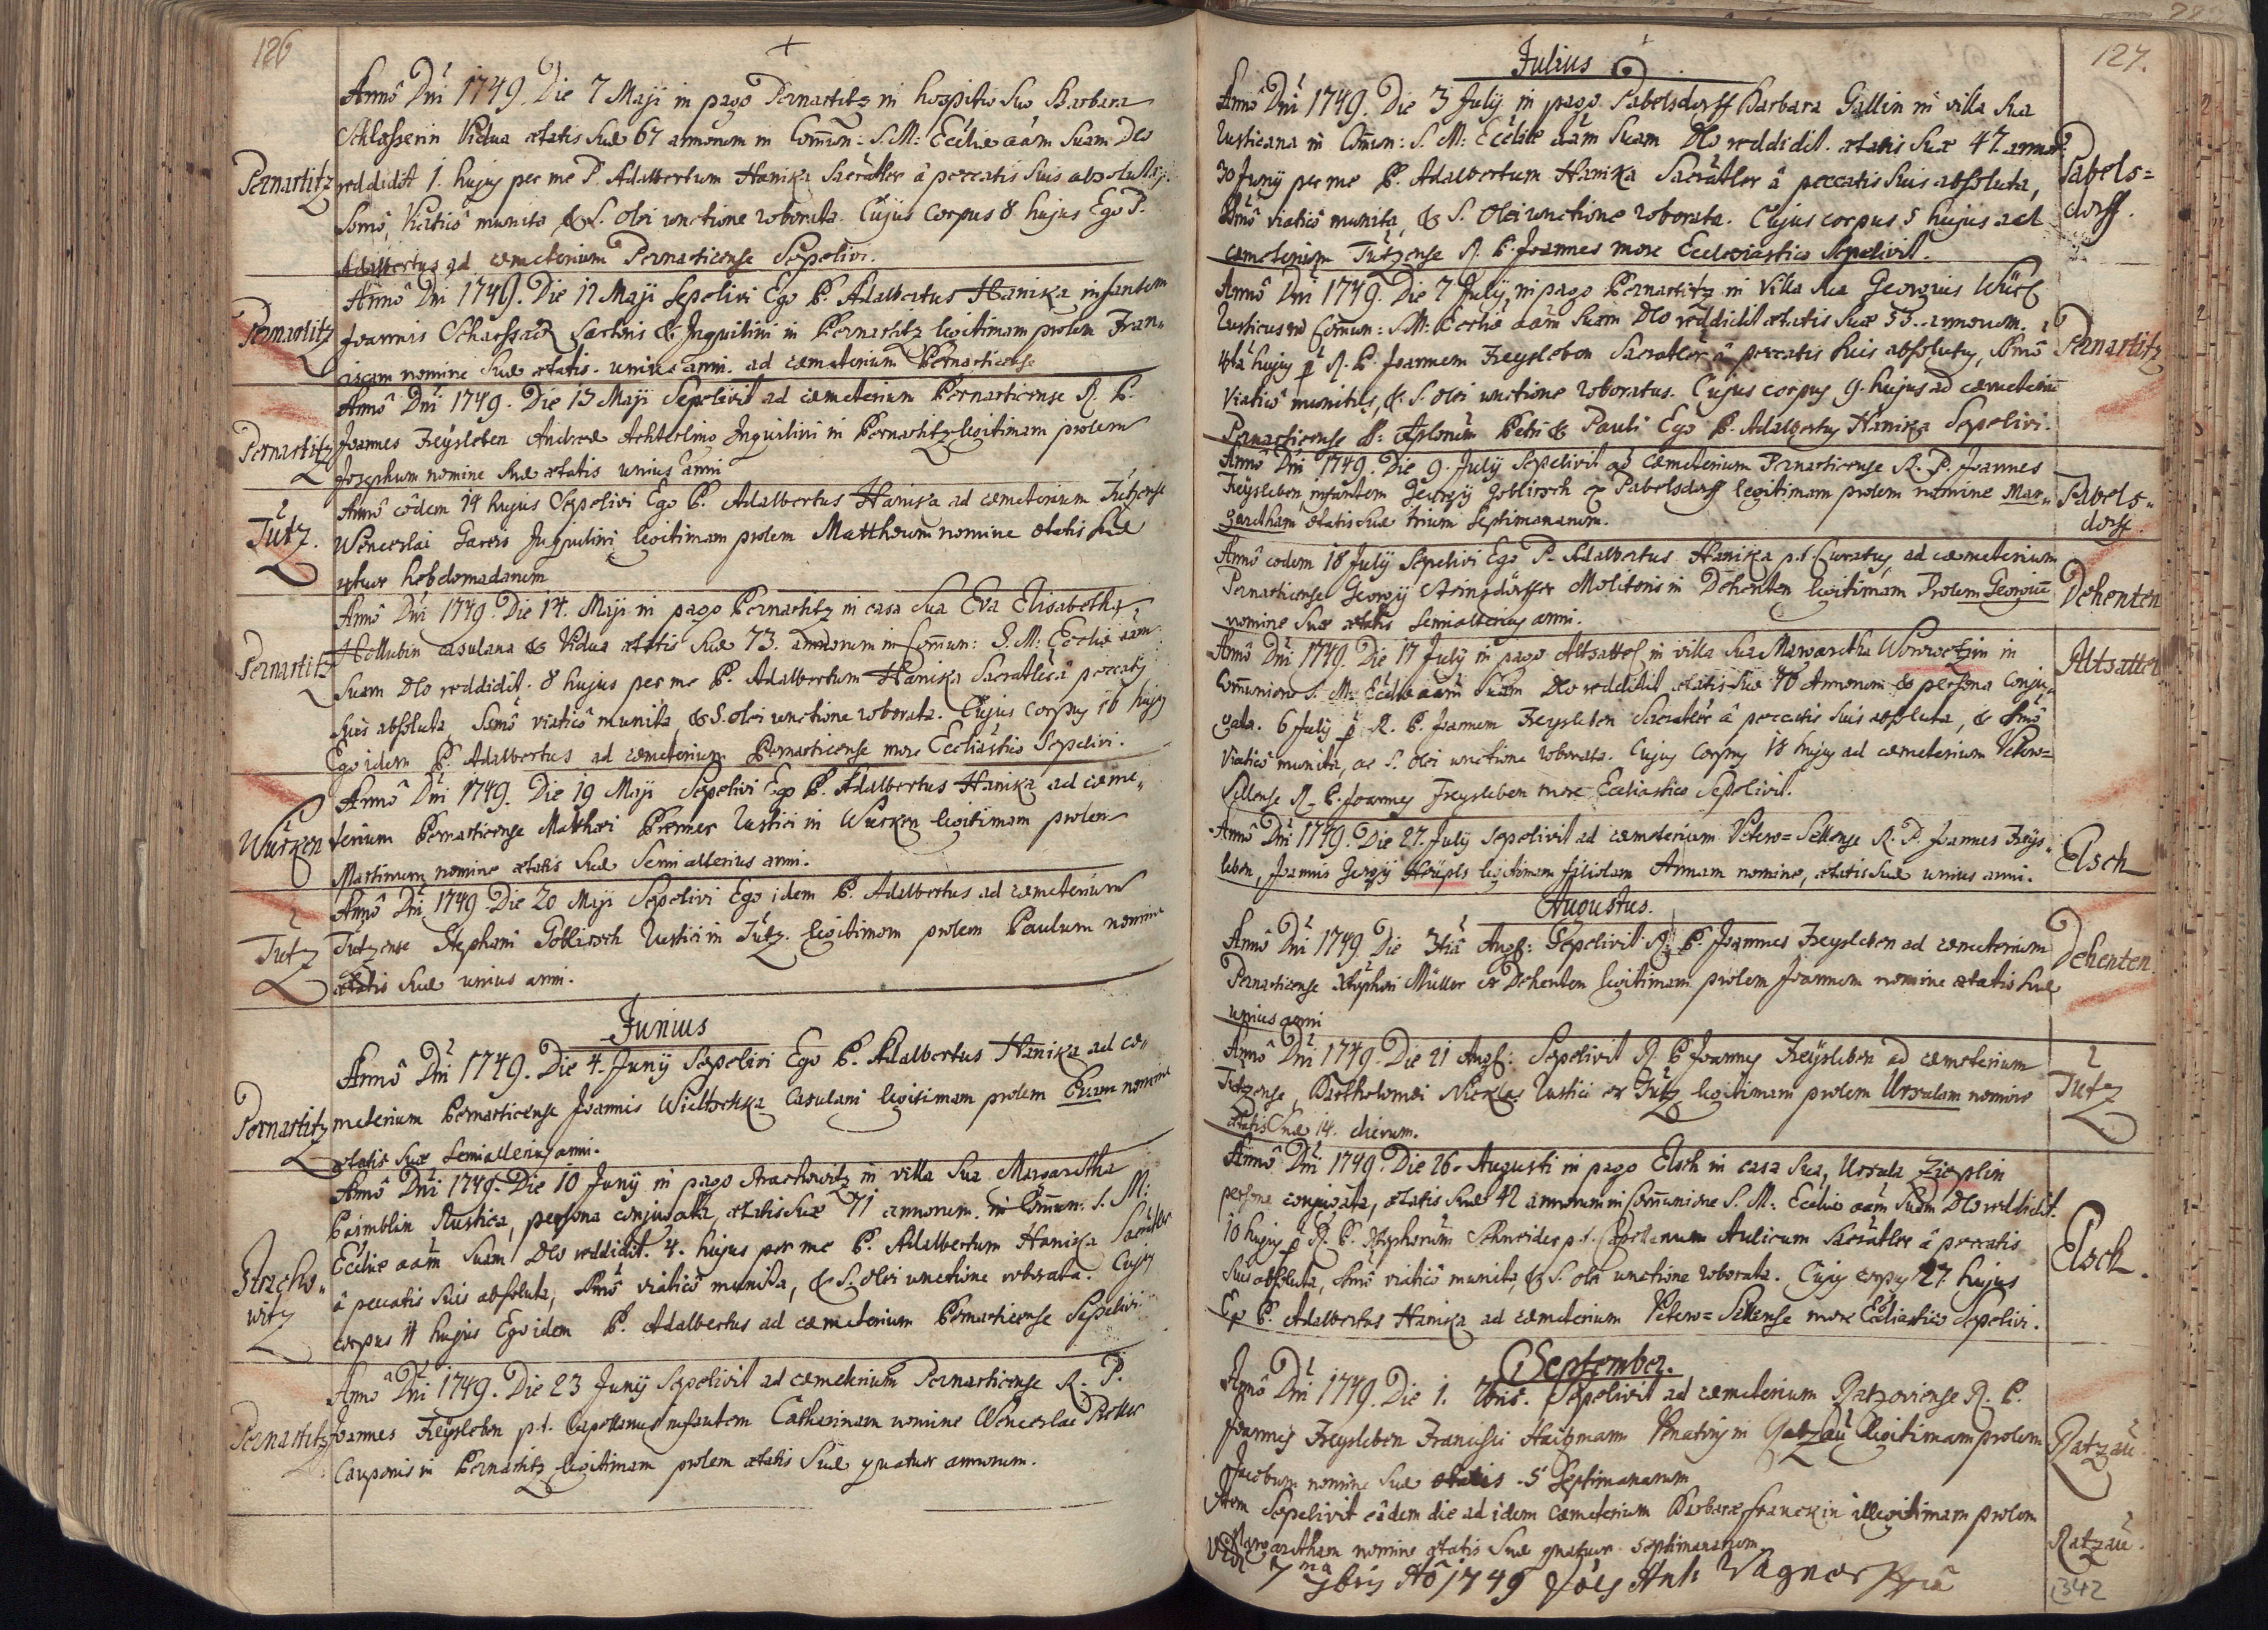 126
Annô Dni 1749. Die 7 Maji in pago Pernartitz in hospitio suo Barbara
Schlosserin Vidua ætatis suæ 67 annorum in Comun: S. M: Eccliæ aam suam Deo
Pernartitz
reddidit 1. hujus per me P. Adalbertum Hanika Sacrâtler â peccatis suis absoluta,
Ssmô Viaticô munita & S. olei unctione roborata. Cujus Corpus 8 hujus Ego P.
Adalbertus ad cæmeterium Pernarticense Sepelivi.
Annô Dni 1749. Die 12 Maji Sepelivi Ego P. Adalbertus Hanika infantem
Pernartitz
Joannis Sartoris & Inquilini in Pernartitz legitimam prolem Fran=
ciscam nomine suæ ætatis unius anni ad cæmeterium Pernarticense
Annô Dni 1749. Die 13 Maji Sepelivit ad cæmeterium Pernarticense R. P.
Pernartitz
Joannes Freysleben Andreæ Achterlino Inquilini in Pernartitz legitimam prolem
Josephum nomine suæ ætatis unius anni
Annô eôdem 14 hujus Sepelivi Ego P. Adalbertus Hanika ad cæmeterium Tutzense
Tutz.
Wenceslai Gareis Inquilini legitimam prolem Matthæum nomine ætatis suæ
hebdomadarum
Annô Dni 1749. Die 14. Maji in pago Pernartitz in casa sua Eva Elisabetha
Hollubin casulana & Vidua ætatis suæ 73. annorum in Comun: S. M: Eccliæ aam
Pernartitz
suam Deo reddidit. 8 hujus per me P. Adalbertum Hanika Sacratler â peccatis
suis absoluta, Ssmô viaticô munita & S. olei unctione roborata. Cujus corpus 16 hujus
Ego idem P. Adalbertus ad cæmeterium Pernarticense more Eccliastico Sepelivi.
Annô Dni 1749. Die 19 Maji Sepelivi Ego P. Adalbertus Hanika ad cæme=
Wurken
terium Pernarticense Matthæi Premer Rustici in Wurken legitimam prolem
Martinum nomine ætatis suæ Semialterius anni.
Annô Dni 1749 Die 20 Maji Sepelivi Ego idem P. Adalbertus ad cæmeterium
Tutz
Tutzense Stephani Goblirsch Rustici in Tutz. legitimam prolem Paulum nomine
ætatis suæ unius anni.
Junius
Annô Dni 1749. Die 4. Junij Sepelivi Ego P. Adalbertus Hanika ad cæ=
Pernartitz
meterium Pernarticense Joannis Wieltschka Casulani legitimam prolem Evam nomine
ætatis suæ Semialterius anni.
Annô Dni 1749. Die 10 Junij in pago Strachowitz in villa sua Margaretha
Rustica, persona conjugata, ætatis suæ 71 annorum in Comun: S. M:
Stracho=
witz
Eccliæ aam suam Deo reddidit. 4. hujus per me P. Adalbertum Hanika Sacratler
â peccatis suis absoluta, Ssmô viaticô munita, & S. olei unctione roborata. Cujus
corpus 11 hujus Ego idem P. Adalbertus ad cæmeterium Pernarticense Sepelivi
Annô Dni 1749. Die 23 Junij Sepelivit ad cæmeterium Pernarticense R. P.
Pernartitz
Joannes Freysleben p.t. Capellanus infantem Catharinam nomine Wenceslai
Cauponis in Pernartitz legitimam prolem ætatis suæ quatuor annorum.
127.
Julius
Annô Dni 1749. Die 3 July in pago Pabelsdorff Barbara Gallin in villa sua
Rusticana in Comun: S. M: Eccliæ aam suam Deo reddidit. ætatis suæ 47 annor:
Pabels=
dorff.
30 Junij per me P. Adalbertum Hanika Sacratler â peccatis suis absoluta,
Ssmô viaticô munita, & S. Olei unctione roborata. Cujus corpus 5 hujus ad
cæmeterium Tutzense R. P. Joannes more Ecclesiastico Sepelivit.
Annô Dni 1749. Die 7 July, in pago Pernartitz in Villa sua Georgius
Rusticus in Comun: S. M: Eccliæ aam suam Deo reddidit ætatis suæ 53. annorum.
Pernartitz
4ta hujus p R. P. Joannem Freysleben Sacratler â peccatis suis absolutus, Ssmô
Viaticô munitus, & S. olei unctione roboratus. Cujus corpus 9. hujus ad cæmeteriū
Pernarticense S: Aplorum Petri & Pauli Ego P. Adalbertus Hanika Sepelivi.
Annô Dni 1749. Die 9. July Sepelivit ad cæmeterium Pernarticense R. P. Joannes
Freysleben, infantem Georgij Goblirsch ex Pabelsdorff legitimam prolem nomine Mar=
Pabels=
dorff.
garetham ætatis suæ trium Septimanarum.
Annô eodem 18 July Sepelivi Ego P. Adalbertus Hanika p.t. Curatus, ad cæmeterium
Dehenten
Pernarticense Georgij Molitoris in Dehenten legitimam Prolem Georgiū
nomine suæ ætatis Semialterius anni.
Annô Dni 1749. Die 17 July in pago Altsattel in villa sua Margaretha in
Altsattel
Comunione S. M: Eccliæ aam suam Deo reddidit ætatis suæ 70 Annorum & persona conju=
gata. 6 July p R. P. Joannem Freysleben Sacratler â peccatis suis absoluta, & Ssmô
Viaticô munita, ac S. olei unctione roborata. Cujus corpus 18 hujus ad cæmeterium Vetero=
Sellense R. P. Joannes Freysleben more Eccliastico Sepelivit.
Annô Dni 1749. Die 27. July Sepelivit ad cæmeterium Vetero=Sellense R. P. Joannes Freys=
Elsch
leben, Joannis Georgij legitimam filiolam Annam nomine, ætatis suæ unius anni.
Augustus.
Annô Dni 1749. Die Augs: Sepelivit R. P. Joannes Freysleben ad cæmeterium
Dehenten.
Pernarticense Müller ex Dehenten legitimam prolem Joannem nomine ætatis suæ
unius anni
Annô Dni 1749. Die 21 Augs: Sepelivit R. P. Joannes Freysleben ad cæmeterium
Tutz
Tutzense, Bartholomæi Nickles Rustici ex Tutz legitimam prolem Ursulam nomine
ætatis suæ 14. dierum.
Annô Dni 1749. Die 26. Augusti in pago Elsch in casa sua, Ursula Zieplin
persona conjugata, ætatis suæ 42 annorum in Comunione S. M: Eccliæ aam suam Deo reddidit.
Elsch.
10 hujus p R. P. Schneider p.t. Capellanum Aulicum Sacratler â peccatis
suis absoluta, Ssmô viaticô munita, & S. olei unctione roborata. Cujus corpus 27 hujus
Ego P. Adalbertus Hanika ad cæmeterium Vetero=Sellense more Eccliastico Sepelivi.
September.
Annô Dni 1749. Die 1. 7bris. Sepelivit ad cæmeterium Ratzoviense R. P.
Joannes Freysleben Francisci Venatoris in Ratzau legitimam prolem
Ratzau.
Jacobum nomine suæ ætatis 5 Septimanarum
Item Sepelivit eâdem die ad idem Cæmeterium Barbaræ Franckin illegitimam prolem
Ratzau.
Margaretham nomine ætatis suæ quatuor septimanarum.
Vidi 7ma 7bris Aô 1749 Jões Ant: Wagner
342